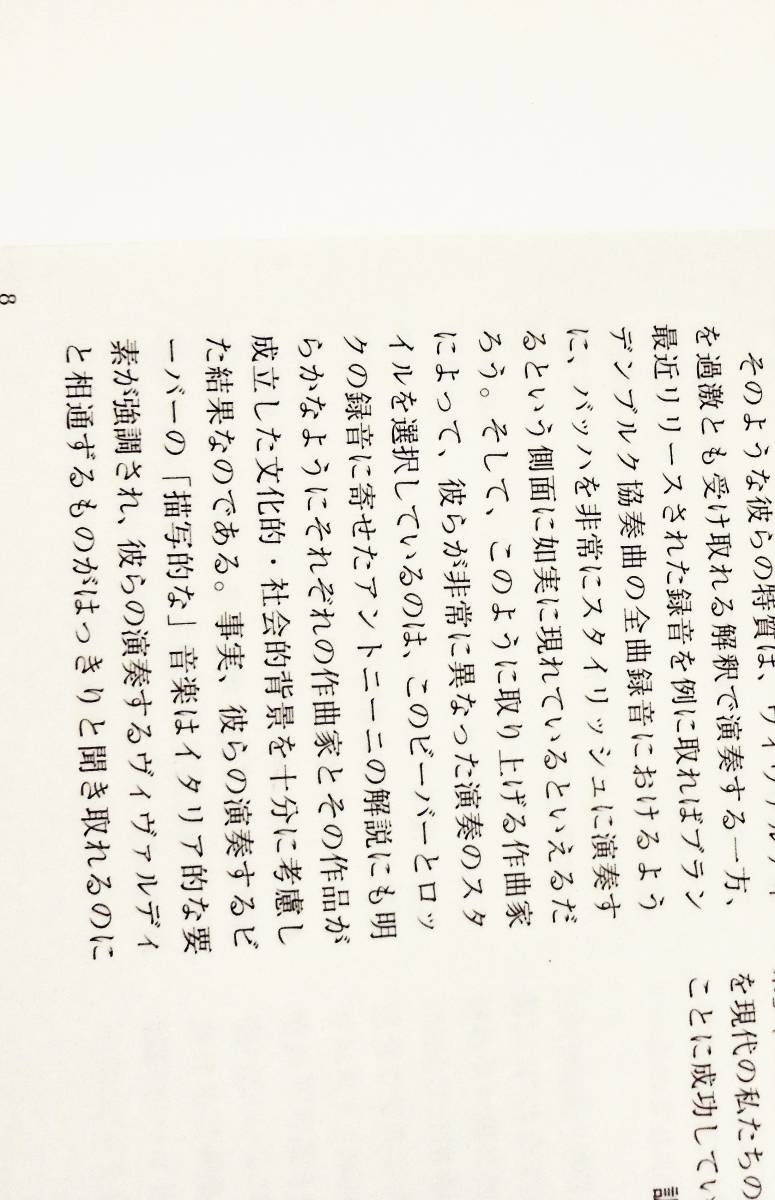 そのような彼らの特質は、ヴィヴァルディ
を過激とも受け取れる解釈で演奏する一方、
最近リリースされた録音を例に取ればブラン
デンブルク協奏曲の全曲録音におけるよう
に、バッハを非常にスタイリッシュに演奏す
るという側面に如実に現れているといえるだ
ろう。そして、このように取り上げる作曲家
によって、彼らが非常に異なった演奏のスタ
イルを選択しているのは、このビーバーとロッ
クの録音に寄せたアントニーニの解説にも明
らかなようにそれぞれの作曲家とその作品が
成立した文化的・社会的背景を十分に考慮し
た結果なのである。事実、彼らの演奏するビ
ーバーの「描写的な」音楽はイタリア的な要
素が強調され、彼らの演奏するヴィヴァルディ
と相通ずるものがはっきりと聞き取れるのに
を現代の私たちの
ことに成功してい
8